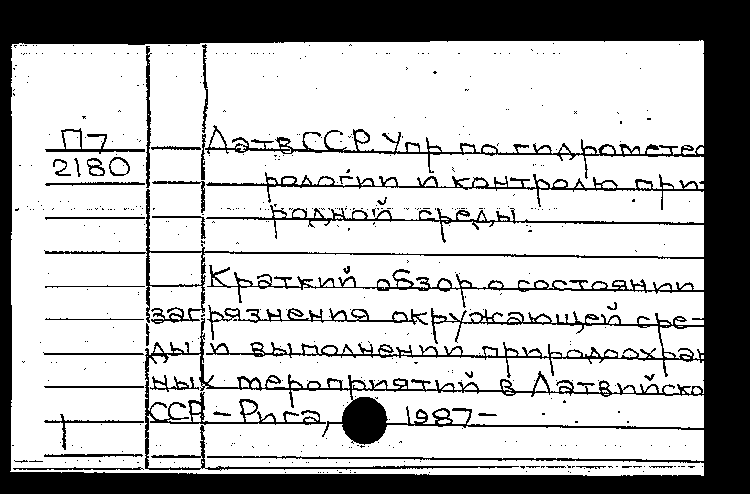 П7
2180
Латв ССР. Упр по гидрометео
рологии и контролю при-
родной среды.
Краткий обзор о состоянии
загрязнения окружающей сре-
ды и выполнении природоохран
ных мероприятий в Латвийско
ССР - Рига, 1987-